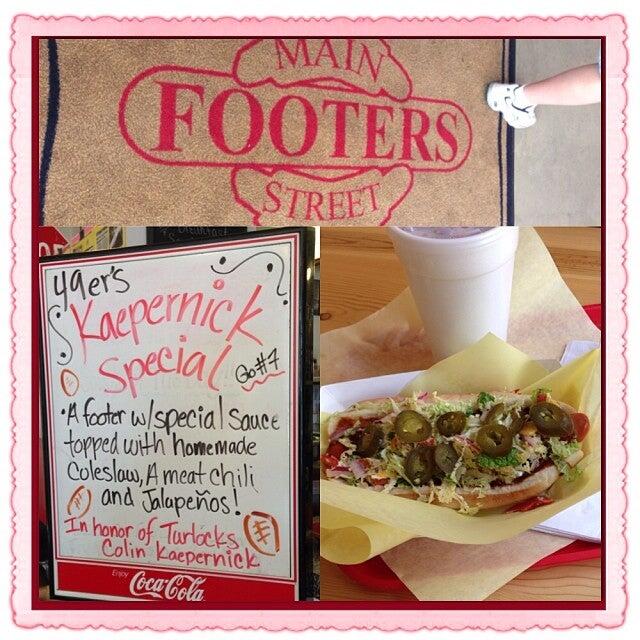 MAIN
FOOTERS
STREET
Breakfast
49er's
Kaepernick
Special
Go #7
• A footer w/special sauce
topped with homemade
Coleslaw, A meat chili
and Jalapeños!
In honor of Turlocks
Colin Kaepernick
Enjoy
Coca-Cola